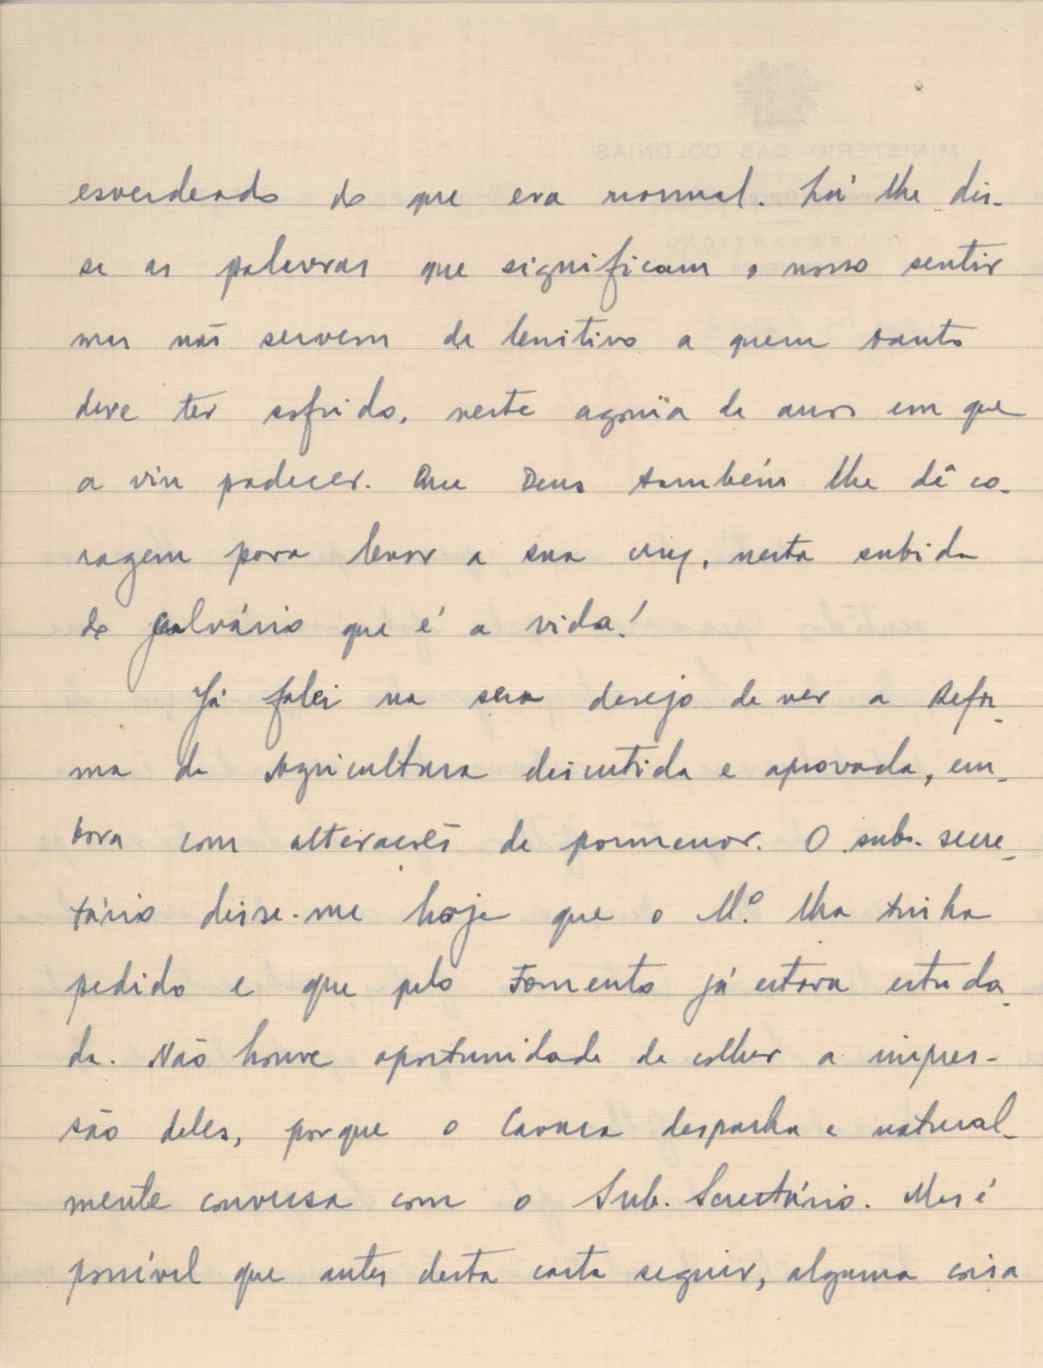 esverdeado do que era normal. Lá lhe dis-
se as palavras que significam o nosso sentir
mas não servem de lenitivo a quem tanto
deve ter sofrido, neste agonia de anos em que
a viu padecer. Que Deus também lhe dê co-
ragem para levar a sua cruz, nesta subida
do galvário que é a vida!
Já falei na seu desejo de ver a Refor-
ma da Agricultura discutida e aprovada, em-
bora com alterações de pormenor. O sub-secre-
tário disse-me hoje que o M.º lha tinha
pedido e que pelo Fomento já estava estuda-
da. Não houve oportunidade de colher a impres-
são deles, porque o despacha e natural-
mente conversa com o Sub-Secretário. Mas é
possível que antes desta carta seguir, alguma coisa
MINISTÉRIO DAS COLÓNIAS